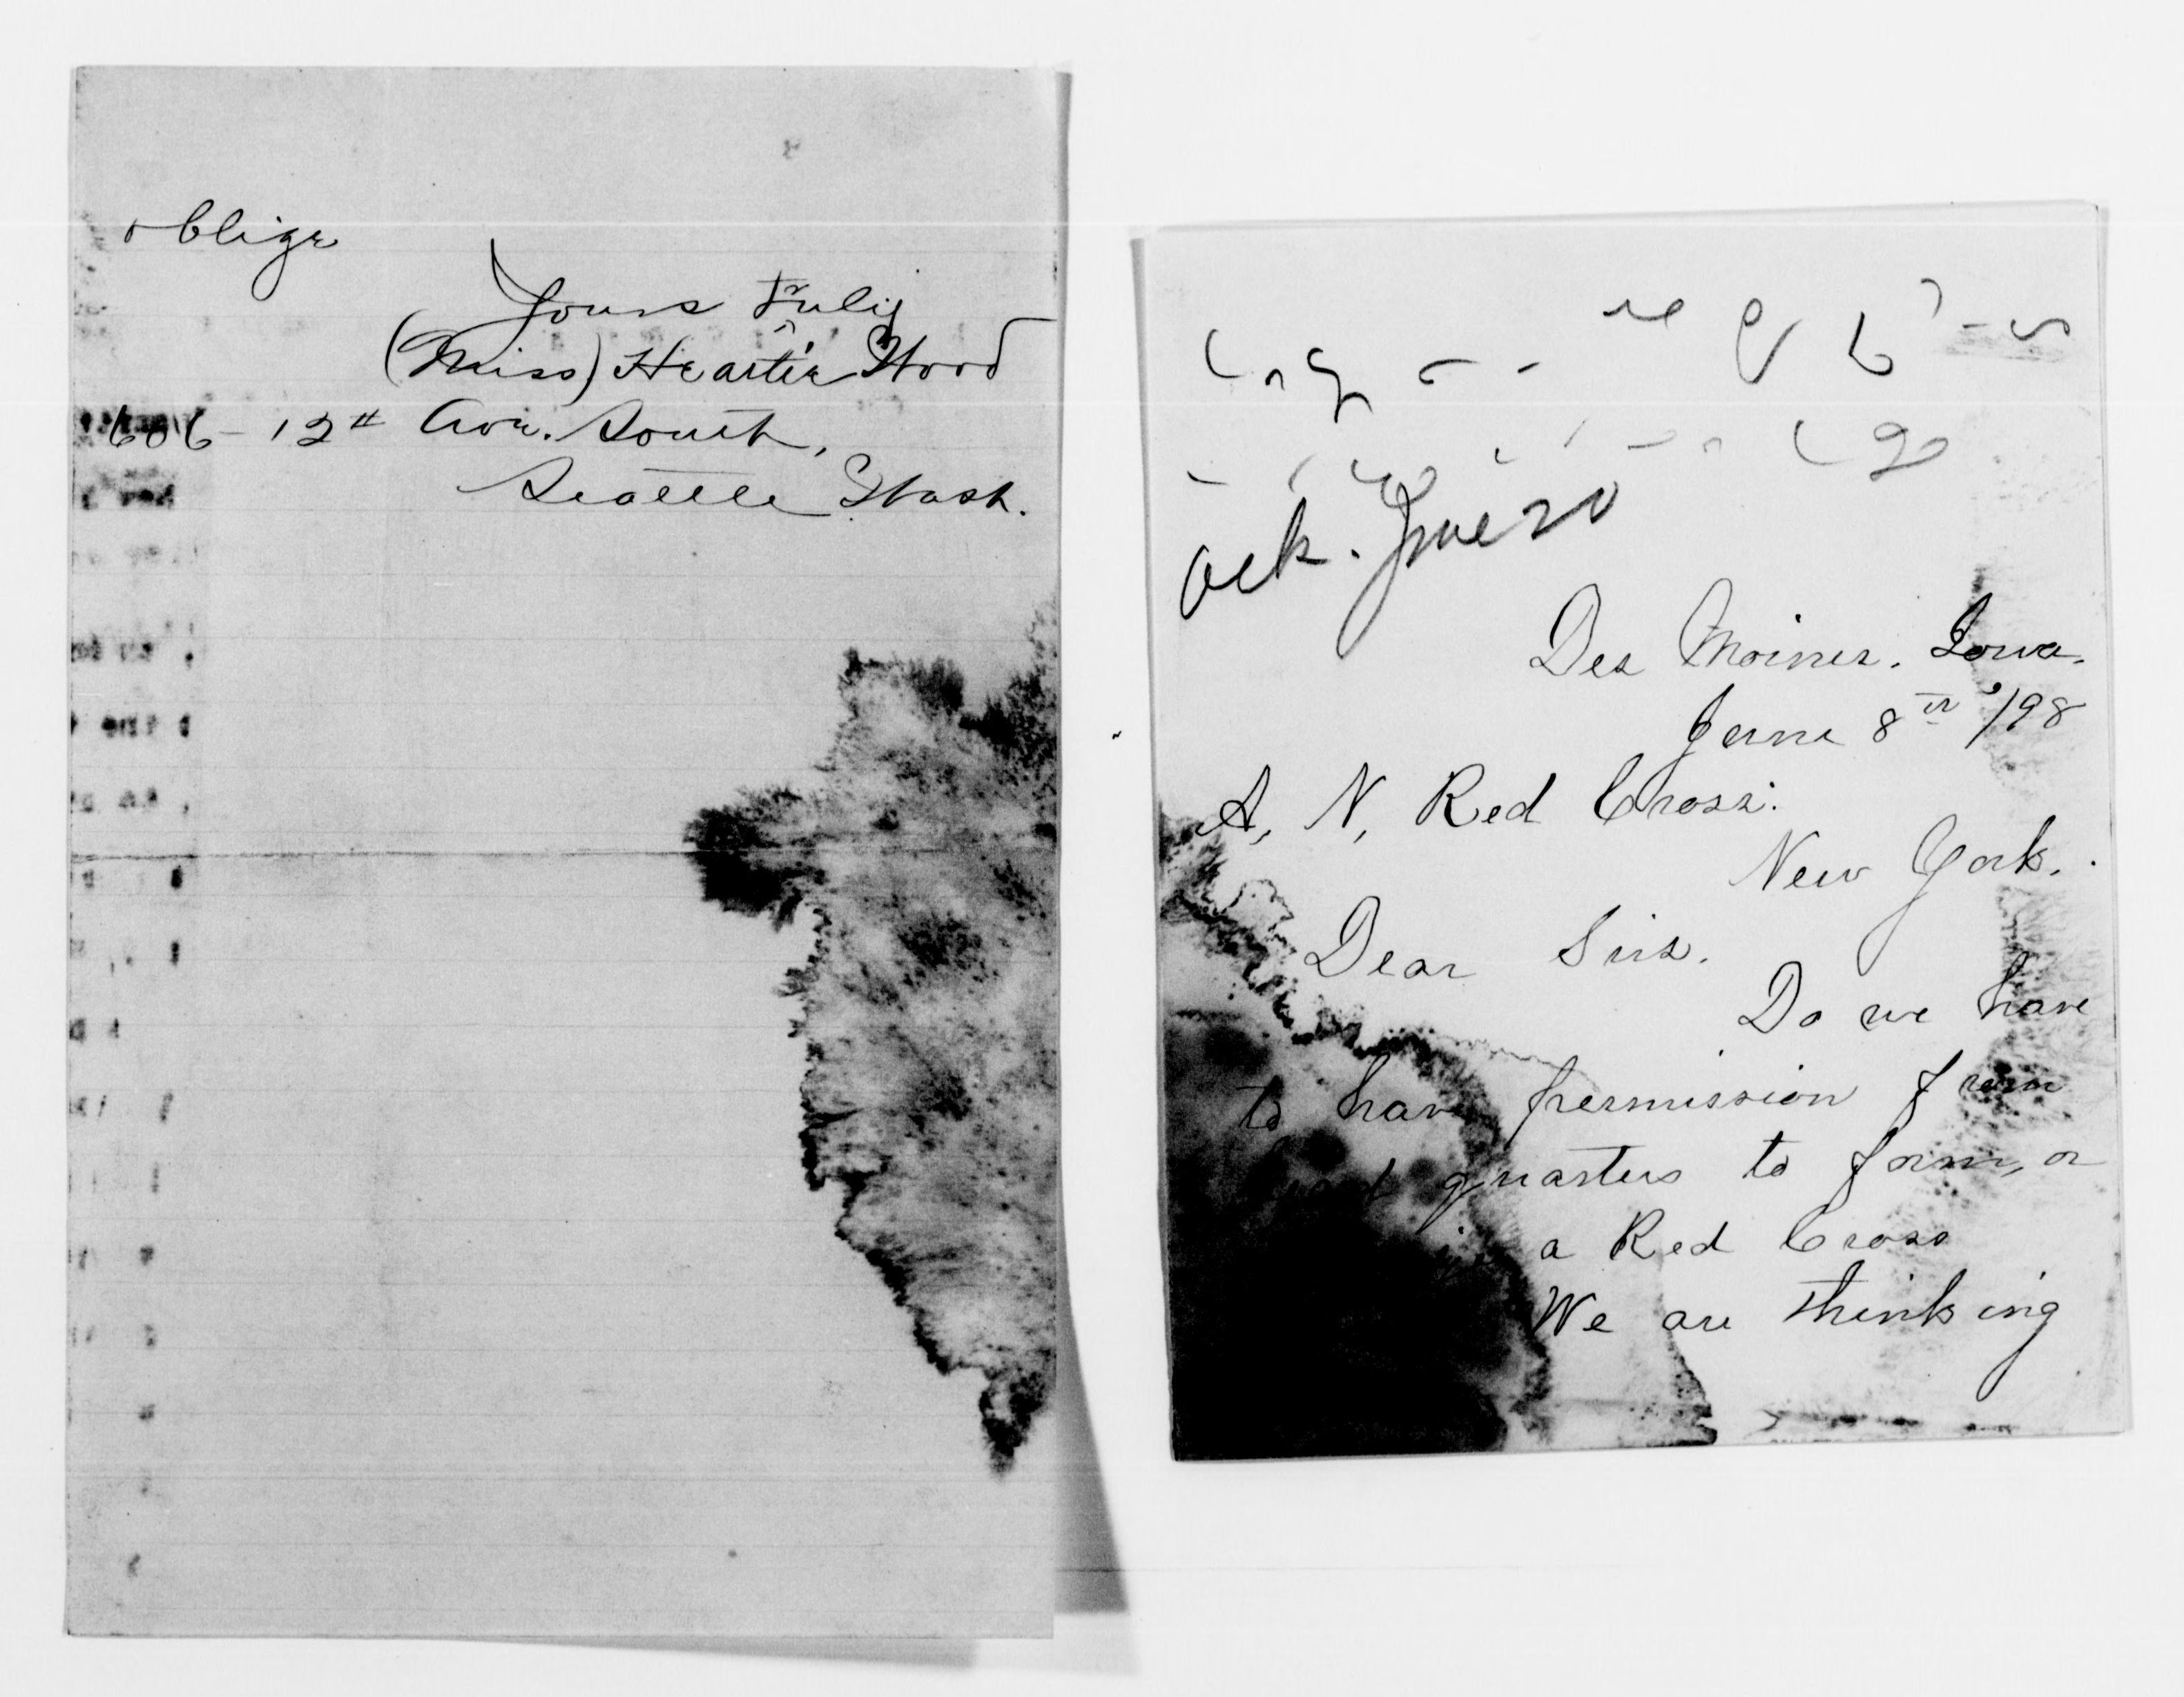 oblige
Yours truly
(Miss) Heartie Wood
606 - 12th Ave. South,
Seattle Wash.
ack. June 20
Des Moines. Iowa.
June 8th '98
A, N, Red Cross.
New York.
Dear Sirs.
Do we have
to have permission from
quarters to form, or
a Red Cross
We are thinking